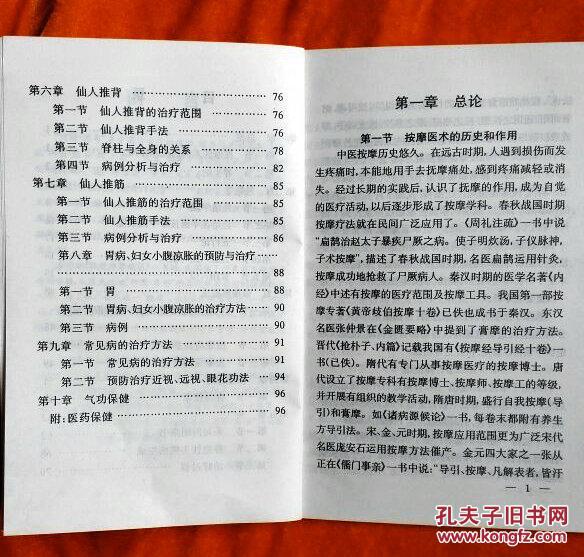 第六章 仙人推背 …………………………… 76
第一节 仙人推背的治疗范围 …………… 76
第二节 仙人推背手法 …………………… 76
第三节 脊柱与全身的关系 ……………… 78
第四节 病例分析与治疗 ………………… 82
第七章 仙人推筋 …………………………… 85
第一节 仙人推筋的治疗范围 …………… 85
第二节 仙人推筋手法 …………………… 85
第三节 病例分析与治疗 ………………… 86
第八章 胃病、妇女小腹凉胀的预防与治疗……
…………………………………………… 88
第一节 胃 ………………………………… 88
第二节 胃病、妇女小腹凉胀的治疗方法 … 90
第三节 病例 ……………………………… 90
第九章 常见病的治疗方法 ………………… 91
第一节 常见病的治疗方法 ……………… 91
第二节 预防治疗近视、远视、眼花功法 … 94
第十章 气功保健 …………………………… 96
附:医药保健 ………………………………… 96
第一章 总论
第一节 按摩医术的历史和作用
中医按摩历史悠久。在远古时期,人遇到损伤而发
生疼痛时,本能地用手去抚摩痛处,感到疼痛减轻或消
失。经过长期的实践后,认识了抚摩的作用,成为自觉
的医疗活动,以后逐步形成了按摩学科。春秋战国时期
按摩疗法就在民间广泛应用了。《周礼注疏》一书中说
“扁鹊治赵太子暴疾尸厥之病。使子明炊汤,子仪脉神,
子术按摩”,描述了春秋战国时期,名医扁鹊运用针灸、
按摩成功地抢救了尸厥病人。秦汉时期的医学名著《内
经》中述有按摩的医疗范围及按摩工具。我国第一部按
摩专著《黄帝歧伯按摩十卷》已佚也成书于秦汉。东汉
名医张仲景在《金匮要略》中提到了膏摩的治疗方法。
晋代《抢朴子、内篇》记载我国有《按摩经导引经十卷》一
书(已佚)。隋代有专门从事按摩医疗的按摩博士。唐
代设立了按摩专科有按摩博士、按摩师、按摩工的等级,
并开展有组织的教学活动,隋唐时期,盛行自我按摩(导
引)和膏摩。如《诸病源候论》一书,每卷末都附有养生
方导引法。宋、金、元时期,按摩应用范围更为广泛宋代
名医庞安石运用按摩方法催产。金元四大家之一张从
正在《儒门事亲》一书中说:“导引、按摩、凡解表者,皆汗
— 1 —
孔夫子旧书网